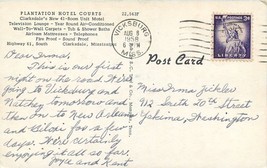 PLANTATION HOTEL COURTS
Clarksdale's New 41-Room Unit Motel
Television Lounge - Year Round Air-Conditioning
Wall-To-Wall Carpets - Tub & Shower Baths
Airfoam Mattresses - Telephones
Fire & Sound Proof
Highway 61, South Clarksdale, Mississippi
VICKSBURG
AUG 8
6 PM
1958
MISS.
U.S. POSTAGE
3¢
LIBERTY
Post Card
Dear Irma:
This is our first
night on the road. We're
going to Vicksburg and
Natchez tomorrow and
then on to New Orleans
and Biloxi for a few
days. We're certainly
enjoying it all so far.
and
Miss Irma
112 South 20th Street
Yakima, Washington